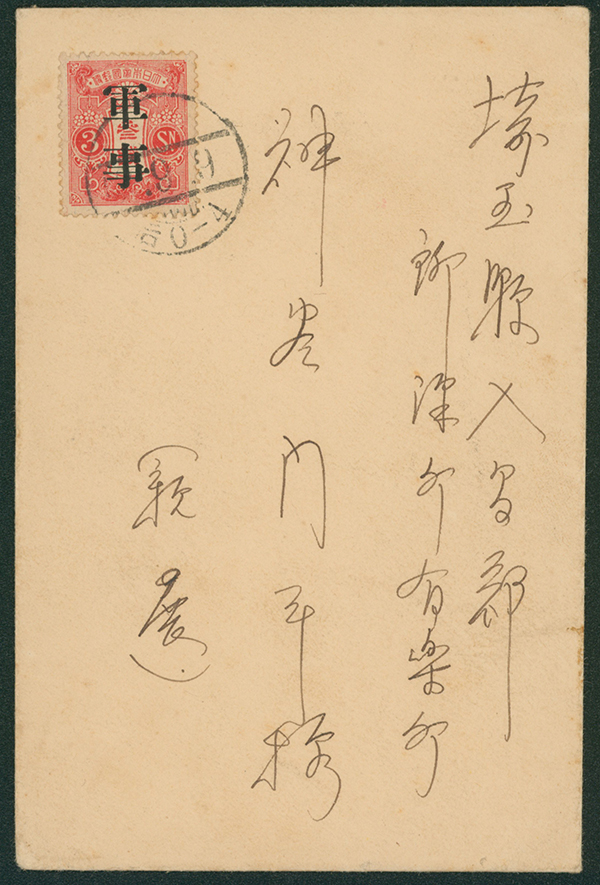 埼玉縣入間郡
所澤町有楽町
神門平様
(親展)
大日本帝國郵便
軍事
3
SN